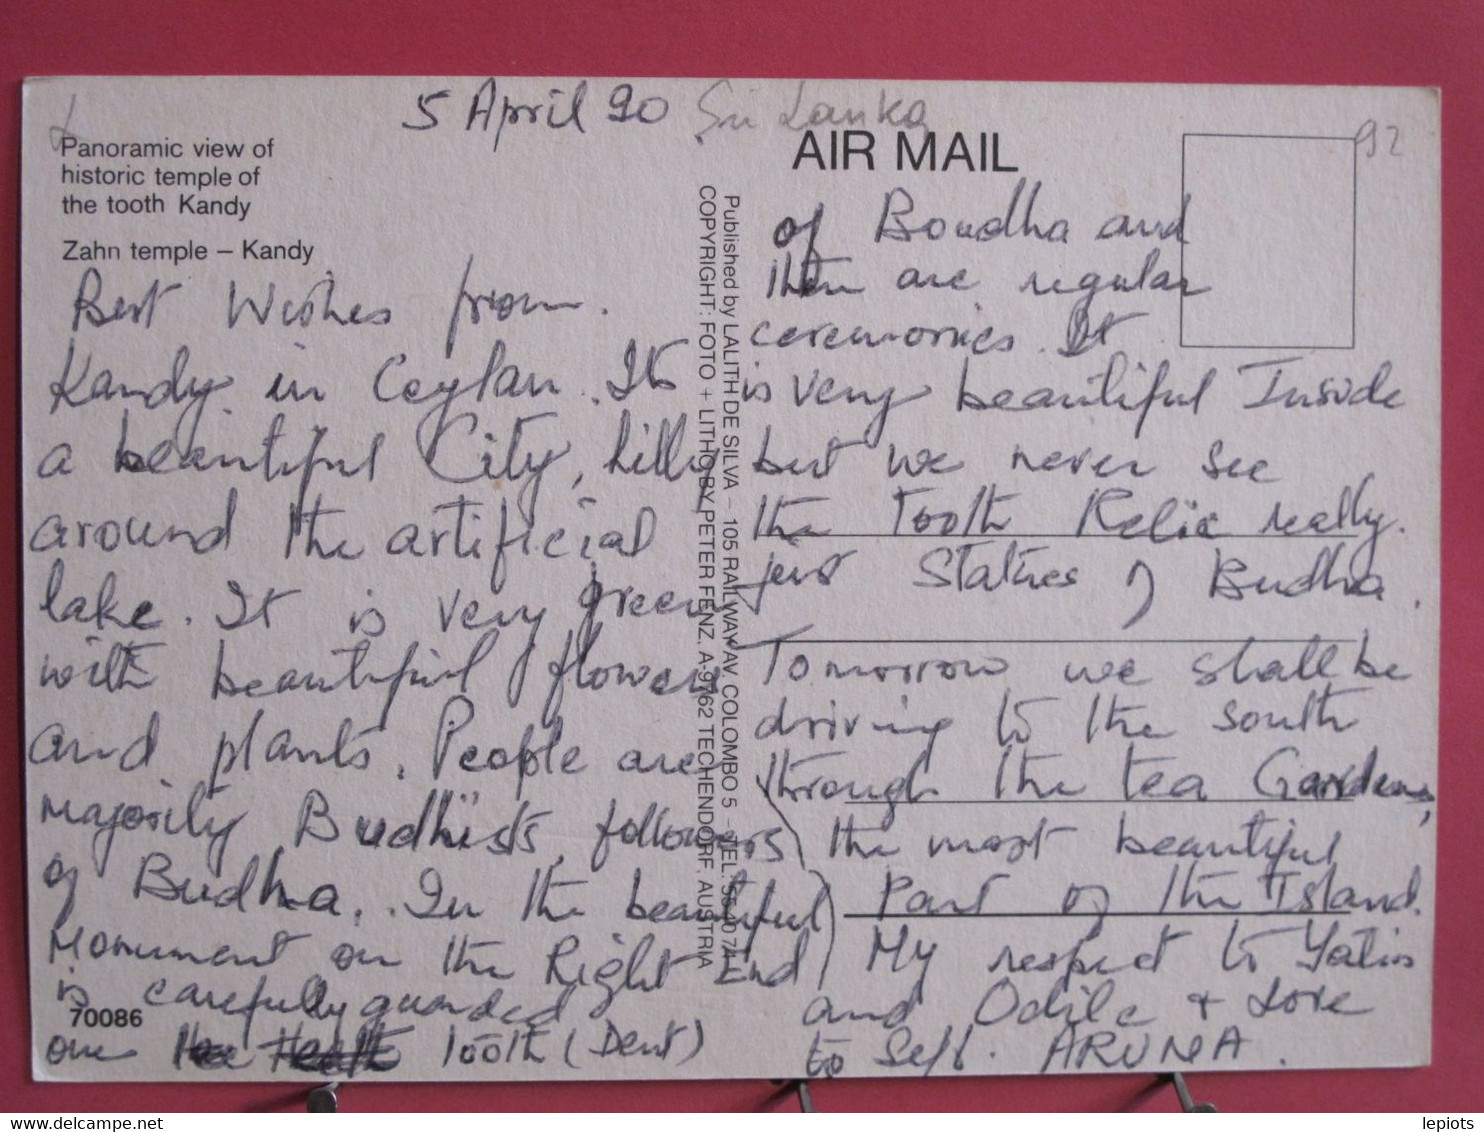 5 April 90 Sri Lanka
92
Panoramic view of
historic temple of
the tooth Kandy
Zahn temple – Kandy
Best Wishes from
Kandy in Ceylan. It's
a beautiful City, hilly
around the artificial
lake. It is very green
with beautiful flowers
and plants. People are
majority Budhists, followers
of Budha. In the beautiful
Monument on the Right End
is carefully guarded
one tooth (Dent)
70086
Published by LALITH DE SILVA – 105 RAILWAY AV. COLOMBO 5 – TEL.
COPYRIGHT: FOTO + LITHO BY PETER FENZ. A-9762 TECHENDORF. AUSTRIA
AIR MAIL
of Boudha and
then are regular
ceremonies. It
is very beautiful Inside
but we never see
the Tooth Relic really.
just Statues of Budha.
Tomorrow we shall be
driving to the south
through the tea Gardens,
the most beautiful
Part of the Island.
My respect to
and Odile + Love
to Self. ARUNA.
lepiots